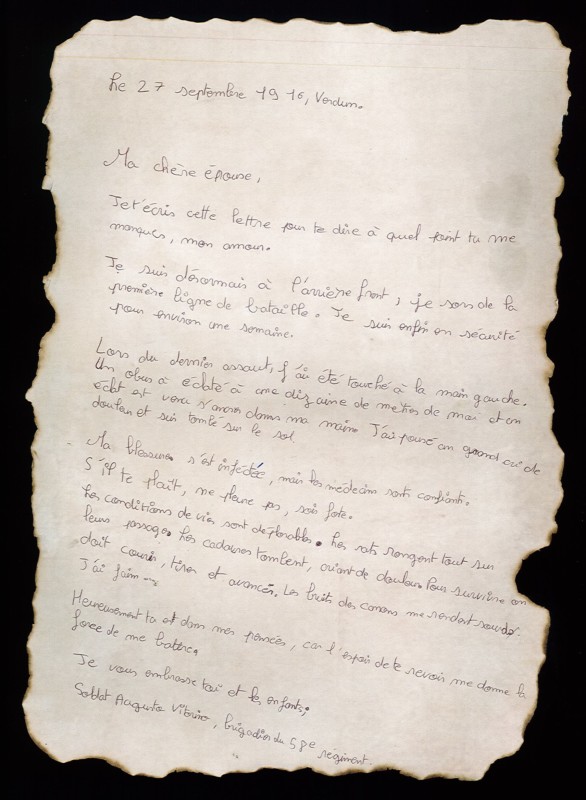 Le 27 septembre 1916, Verdun.
Ma chère épouse,
Je t'écris cette lettre pour te dire à quel point tu me
manques, mon amour.
Je suis désormais à l'arrière front, je sors de la
première ligne de bataille. Je suis enfin en sécurité
pour environ une semaine.
Lors du dernier assaut, j'ai été touché à la main gauche.
Un obus a éclaté à une dizaine de mètres de moi et un
éclat est venu s'ancrer dans ma main. J'ai poussé un grand cri de
douleur et suis tombé sur le sol.
Ma blessure s'est infectée, mais les médecins sont confiants.
S'il te plaît, ne pleure pas, sois forte.
Les conditions de vies sont déplorables. Les rats rongent tout sur
leurs passage. Les cadavres tombent, criant de douleur. Pour survivre on
doit courir, tirer et avancer. Les bruits des canons me rendent sourd.
J'ai faim...
Heureusement tu es dans mes pensées, car l'espoir de te revoir me donne la
force de me battre.
Je vous embrasse toi et les enfants,
Soldat Augusto Vitorino, brigadier du 58e régiment.